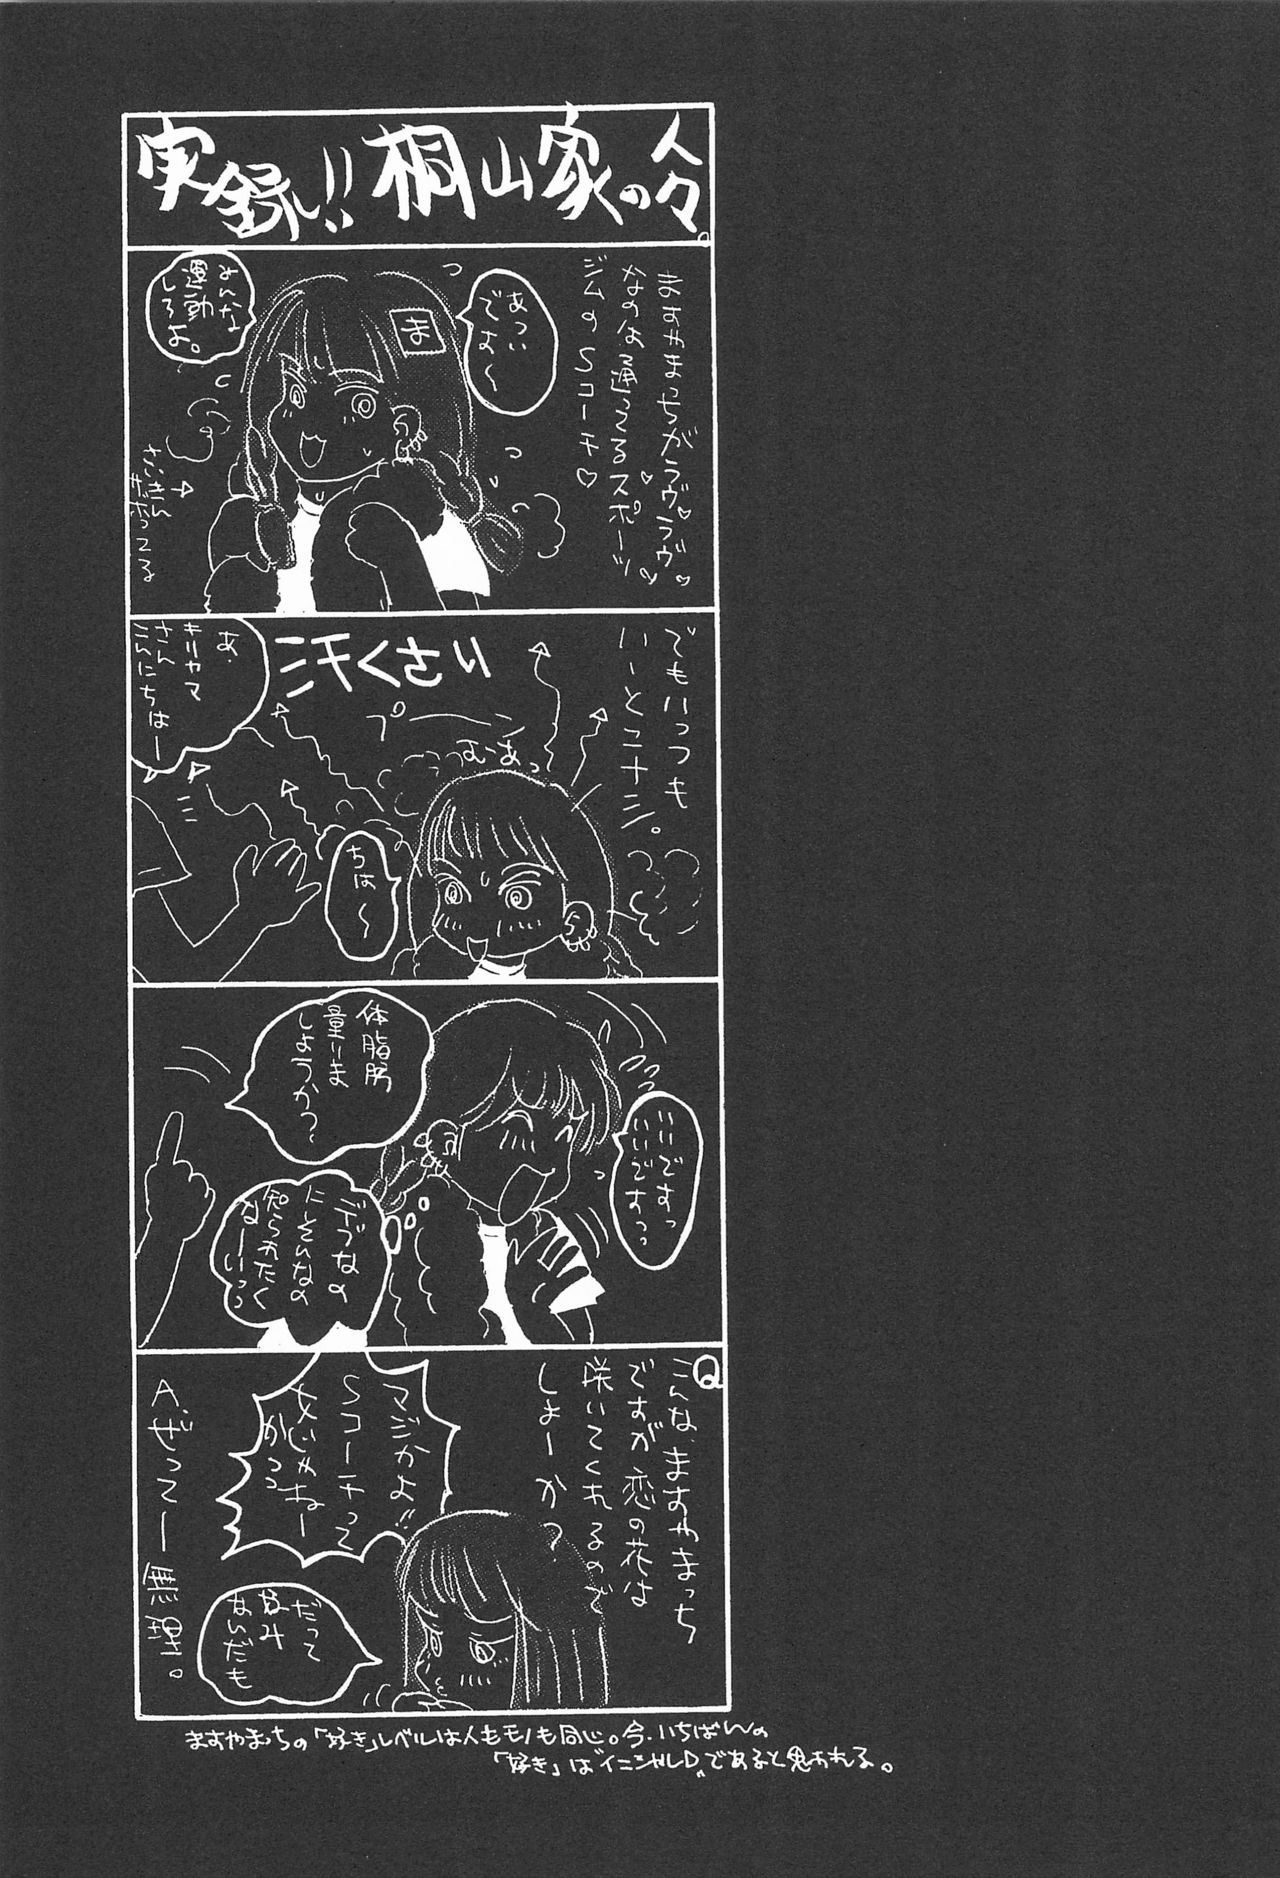 実録!!桐山家の人々。
ますやまっちがラヴ♡ラヴ♡
なのは通ってるスポーツ
ジムのSコーチ♡
あつい
ですね〜
ま
みんな
運動
しろよ。
さいきん
サボってる
でもいっつも
いーとこナシ。
汗くさい
プーン
むーあっ
ちは〜
あ、
キリヤマ
さん
こんにちはー
体脂肪
量りま
しょうか?
いいですっ
いいですっっ
デブなの
にーさんなの
知られたく
なーいっっ
Q
こんな、ますやまっち
ですが恋の花は
咲いてくれるので
しょーか?
マジかよ!!
Sコーチって
だって
好み
ないだも
A.ぜってー無理。
ますやまっちの「好き」レベルは人もモノも同じ。今、いちばんの
「好き」は"イニシャルD"であると思われる。